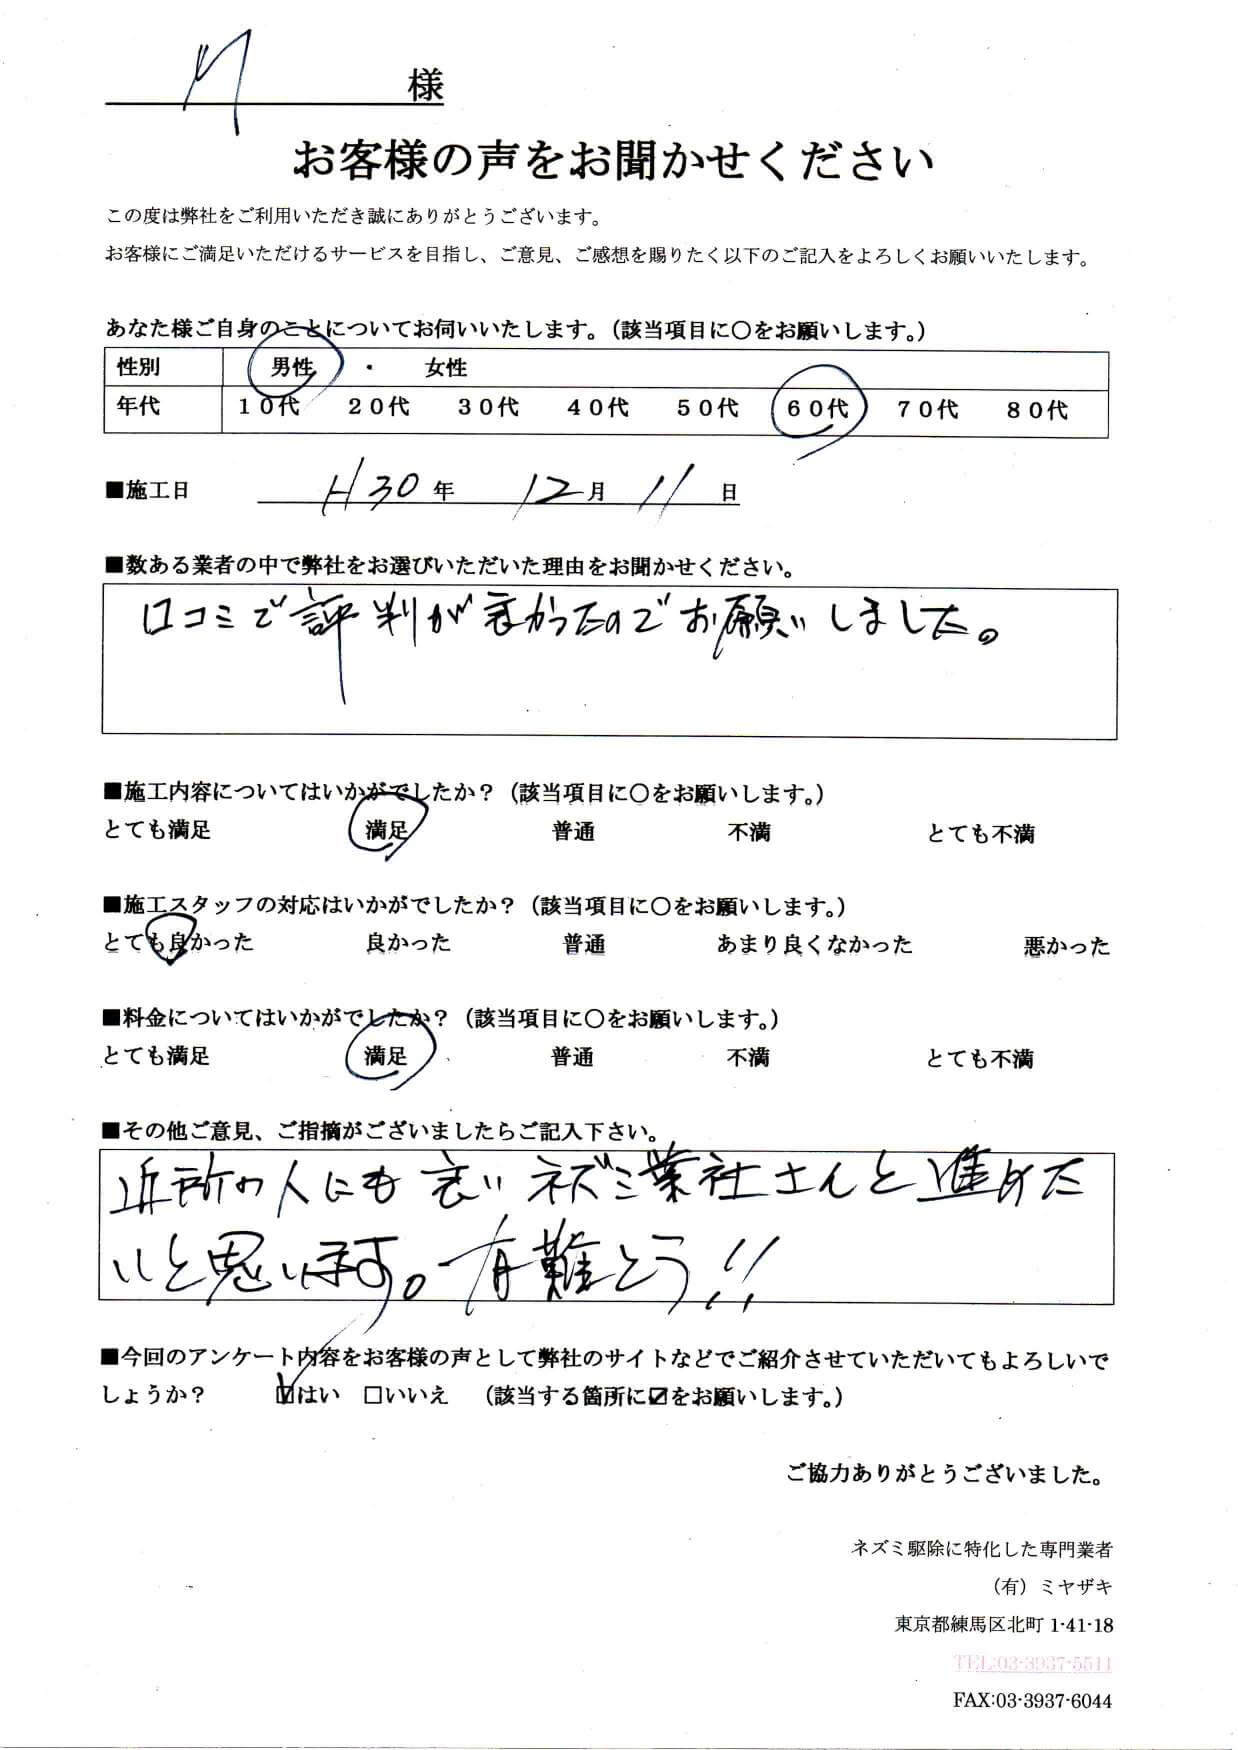 M 様
お客様の声をお聞かせください
この度は弊社をご利用いただき誠にありがとうございます。
お客様にご満足いただけるサービスを目指し、ご意見、ご感想を賜りたく以下のご記入をよろしくお願いいたします。
あなた様ご自身のことについてお伺いいたします。（該当項目に〇をお願いします。）
性別 男性 ・ 女性
年代 １０代 ２０代 ３０代 ４０代 ５０代 ６０代 ７０代 ８０代
■施工日 H30年 12月 11日
■数ある業者の中で弊社をお選びいただいた理由をお聞かせください。
口コミで評判が良かったのでお願いしました。
■施工内容についてはいかがでしたか？（該当項目に〇をお願いします。）
とても満足 満足 普通 不満 とても不満
■施工スタッフの対応はいかがでしたか？（該当項目に〇をお願いします。）
とても良かった 良かった 普通 あまり良くなかった 悪かった
■料金についてはいかがでしたか？（該当項目に〇をお願いします。）
とても満足 満足 普通 不満 とても不満
■その他ご意見、ご指摘がございましたらご記入下さい。
近所の人にも良いネズミ業社さんと進めた
いと思います。有難とう!!
■今回のアンケート内容をお客様の声として弊社のサイトなどでご紹介させていただいてもよろしいで
しょうか？ ☑はい □いいえ （該当する箇所に☑をお願いします。）
ご協力ありがとうございました。
ネズミ駆除に特化した専門業者
（有）ミヤザキ
東京都練馬区北町 1-41-18
TEL:03-3937-5511
FAX:03-3937-6044